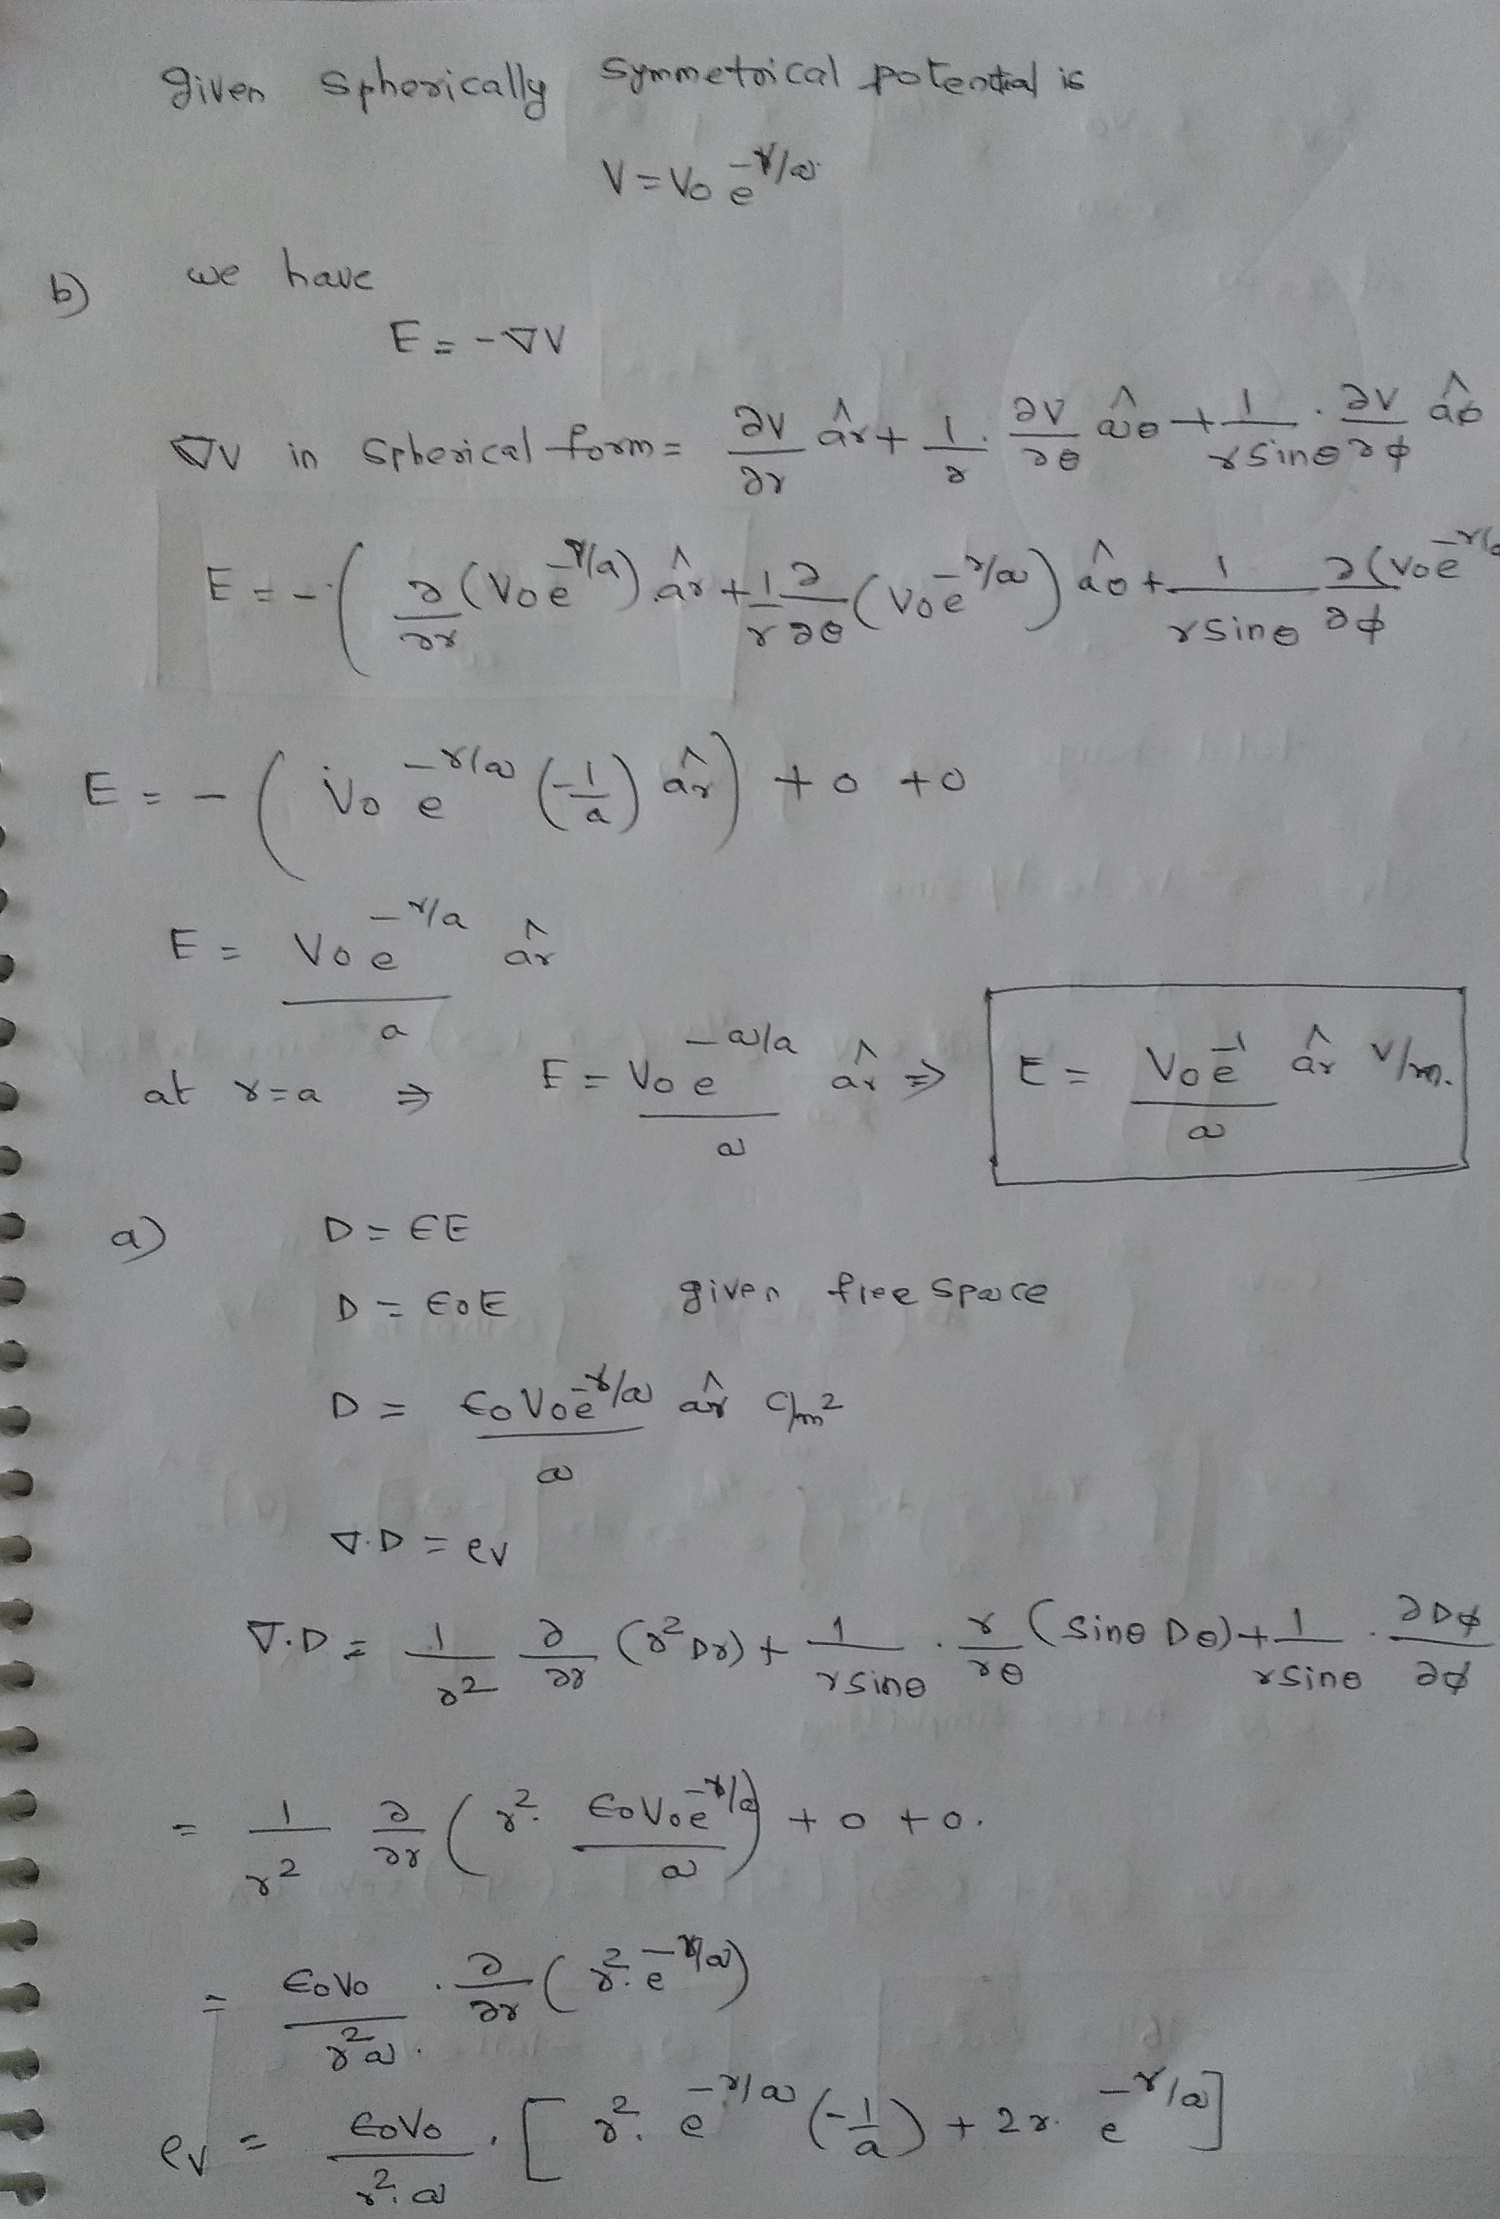 given spherically symmetrical potential is
V = V₀ e^(-r/a)
b) we have
E = -∇V
∇V in spherical form = ∂V/∂r âr + 1/r . ∂V/∂θ âθ + 1/(r sinθ) . ∂V/∂φ âφ
E = -( ∂/∂r (V₀e^(-r/a)) âr + 1/r ∂/∂θ (V₀e^(-r/a)) âθ + 1/(r sinθ) ∂(V₀e^(-r/a)/∂φ
E = -( V₀ e^(-r/a) (-1/a) âr ) + 0 + 0
E = V₀e^(-r/a)/a âr
at r=a ⇒ E = V₀e^(-a/a)/a âr ⇒ E = V₀e^(-1)/a âr V/m.
a) D = ϵE
D = ϵ₀E given free space
D = ϵ₀V₀e^(-r/a)/a âr C/m²
∇.D = ρv
∇.D = 1/r² ∂/∂r (r² Dr) + 1/(r sinθ) . r/rθ (sinθ Dθ) + 1/(r sinθ) . ∂Dφ/∂φ
= 1/r² ∂/∂r ( r². ϵ₀V₀e^(-r/a)/a ) + 0 + 0.
= ϵ₀V₀/(r²a) . ∂/∂r ( r². e^(-r/a) )
ρv = ϵ₀V₀/(r².a) . [ r². e^(-r/a) (-1/a) + 2r. e^(-r/a) ]